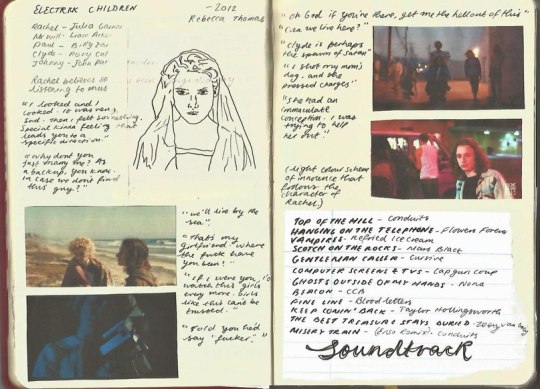 ELECTRIK CHILDREN
-2012
Rebecca Thomas
Rachel - Julia Garner
Mr Will - Liam Aiken
Paul - Billy Zane
Clyde - Rory Cul
Johnny - John Pat
Rachel believes so
listening to music
"I looked and I
looked. It was very
sad. Then I felt something.
Special kinda feeling that
leads you to a
specific direction"
"Why dont you
just marry me? As
a backup, you know,
in case we don't find
this guy?"
"we'll live by the
sea"
"That's my
girlfriend. where
the fuck have
you been?"
"If I were you, I'd
watch this girl
every move. Girls
like this can't be
trusted."
"Told you he'd
say 'fucker.'"
"oh God if you're there, get me the hell out of this"
"Can we live here?"
"Clyde is perhaps
the spawn of Satan"
"I shot my mom's
dog. and she
pressed charges"
"She had an
immaculate
conception. I was
trying to help
her out."
(light colour scheme
of innocence that
follows the
character of
Rachel)
TOP OF THE HILL - Conduits
HANGING ON THE TELEPHONE - Flowers Forever
VAMPIRES - Refried Icecream
SCOTCH ON THE ROCKS - Mars Black
GENTLEMAN CALLER - Cursive
COMPUTER SCREENS & TVS - Capgun Coup
GHOSTS OUTSIDE OF MY HANDS - Nona
BEACON - CCB
PINE LINE - Bloodletters
KEEP COMIN' BACK - Taylor Hollingsworth
THE BEST TREASURE STAYS BURIED - Zoey Van Goey
MISERY TRAIN - (Enso Remix) - Conduits
Soundtrack